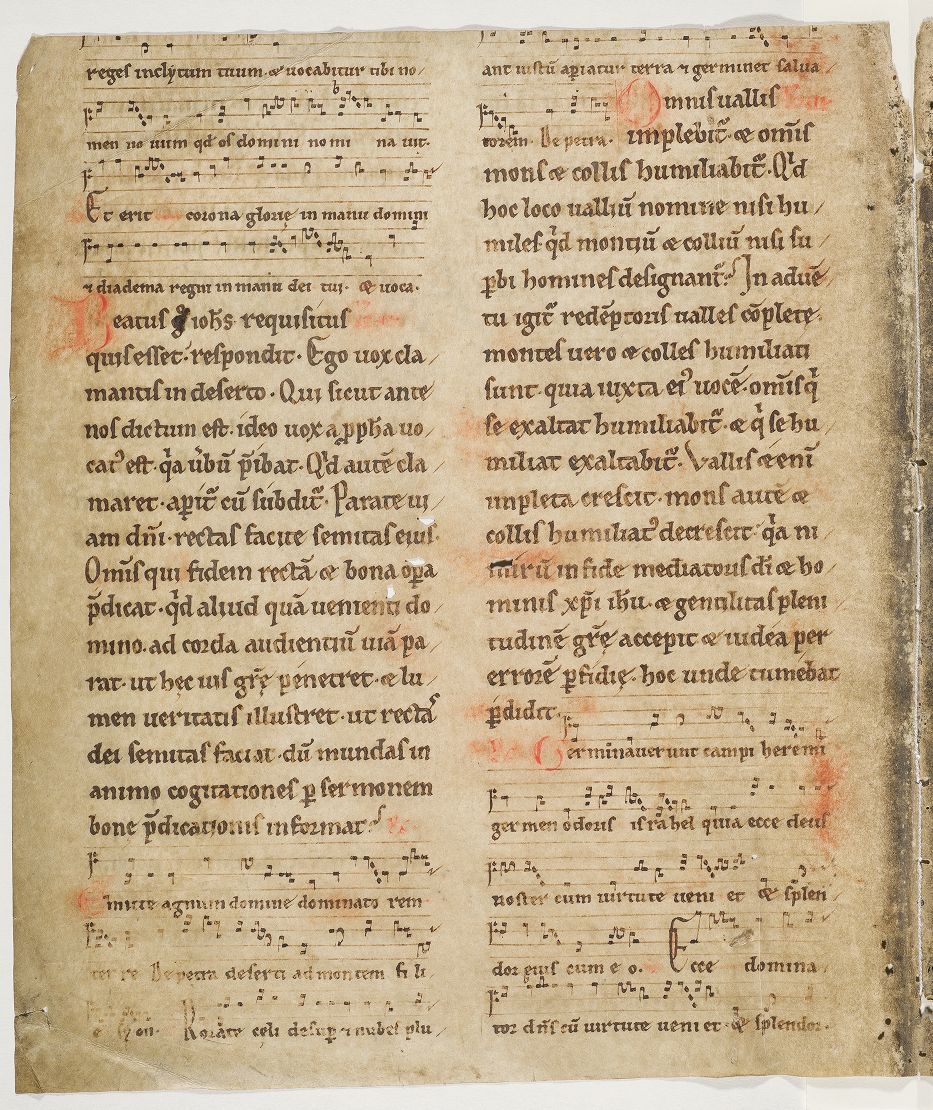 reges inclytum tuum · & uocabitur tibi no/
men no uum qđ os domini nomi na uit.
Et erit corona glorię in manu domini
⁊ diadema regni in manu dei tui · & uoca.
Beatus g̾ ioħs requisitus
quis esset · respondit · Ego uox cla/
mantis in deserto · Qui sicut ante/
nos dictum est · ideo uox a ꝓpħa uo/
cat᷒ est · q̓a ūbū p̄ibat · Qd̓ autē cla/
maret · apit̄ cū subdit̄ · Parate ui/
am dn̄i · rectas facite semitas eius.
Om̄is qui fidem rectā & bona oꝑa
p̄dicat · qd̓ aliud quā uenienti do/
mino · ad corda audientiū uiā pa/
rat · ut hęc uis gr̄ę penetret · & lu/
men ueritatis illustret · ut rectas
dei semitas faciat · dū mundas in
animo cogitationes ꝑ sermonem
bonę p̄dicationis informat.
Emitte agnum domine dominato rem
ter re De petra deserti ad montem fi li
e syon. Rorate cęli desuꝑ ⁊ nubes plu/
ant iustū aꝑiatur terra ⁊ germinet salua
torem. De petra. Omnis uallis
implebit̄ · & om̄is
mons & collis humiliabit̄ · Qd̓
hoc loco ualliū nomine nisi hu/
miles · qd̓ montiū & colliū nisi su/
ꝑbi homines designant̄. In aduē/
tu igit̄ redēptoris ualles cōplete.
montes uero & colles humiliati
sunt · quia iuxta ei᷒ uocē · om̄is q̓
se exaltat humiliabit̄ · & q̓ se hu/
miliat exaltabit̄ · Vallis & enī
impleta crescit · mons autē &
collis humiliat᷒ decrescit · q̓a ni/
mirū in fide mediatoris dī & ho/
minis xp̄i ih̄u · & gentilitas pleni/
tudinē gr̄ę accepit & iudea per
errorē ꝑfidię · hoc unde tumebat
ꝑdidit.
Germinauerunt campi heremi
germen odoris israhel quia ecce deus
noster cum uirtute ueni et & splen/
dor eius cum e o. Ecce domina
tor dn̄s cū uirtute ueni et · & splendor.